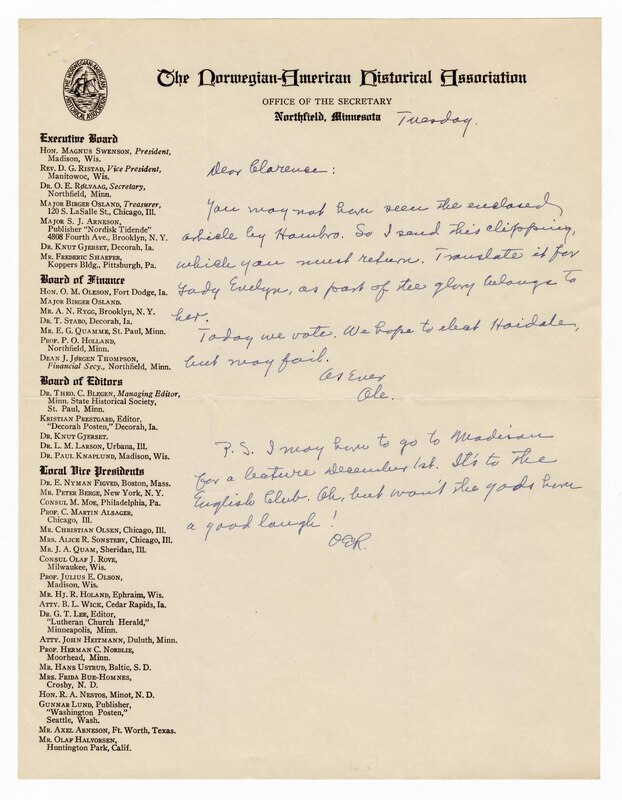 THE NORWEGIAN-AMERICAN HISTORICAL ASSOCIATION
The Norwegian-American Historical Association
OFFICE OF THE SECRETARY
Northfield, Minnesota
Tuesday.
Executive Board
HON. MAGNUS SWENSON, President,
Madison, Wis.
REV. D. G. RISTAD, Vice President,
Manitowoc, Wis.
DR. O. E. RØLVAAG, Secretary,
Northfield, Minn.
MAJOR BIRGER OSLAND, Treasurer,
120 S. LaSalle St., Chicago, Ill.
MAJOR S. J. ARNESON,
Publisher "Nordisk Tidende"
4808 Fourth Ave., Brooklyn, N. Y.
DR. KNUT GJERSET, Decorah, Ia.
MR. FREDERIC SHAEFER,
Koppers Bldg., Pittsburgh, Pa.
Board of Finance
HON. O. M. OLESON, Fort Dodge, Ia.
MAJOR BIRGER OSLAND.
MR. A. N. RYGG, Brooklyn, N. Y.
DR. T. STABO, Decorah, Ia.
MR. E. G. QUAMME, St. Paul, Minn.
PROF. P. O. HOLLAND,
Northfield, Minn.
DEAN J. JØRGEN THOMPSON,
Financial Secy., Northfield, Minn.
Board of Editors
DR. THEO. C. BLEGEN, Managing Editor,
Minn. State Historical Society,
St. Paul, Minn.
KRISTIAN PRESTGARD, Editor,
"Decorah Posten," Decorah, Ia.
DR. KNUT GJERSET.
DR. L. M. LARSON, Urbana, Ill.
DR. PAUL KNAPLUND, Madison, Wis.
Local Vice Presidents
DR. E. NYMAN FIGVED, Boston, Mass.
MR. PETER BERGE, New York, N. Y.
CONSUL M. MOE, Philadelphia, Pa.
PROF. C. MARTIN ALSAGER,
Chicago, Ill.
MR. CHRISTIAN OLSEN, Chicago, Ill.
MRS. ALICE R. SONSTEBY, Chicago, Ill.
MR. J. A. QUAM, Sheridan, Ill.
CONSUL OLAF J. ROVE,
Milwaukee, Wis.
PROF. JULIUS E. OLSON,
Madison, Wis.
MR. HJ. R. HOLAND, Ephraim, Wis.
ATTY. B. L. WICK, Cedar Rapids, Ia.
DR. G. T. LEE, Editor,
"Lutheran Church Herald,"
Minneapolis, Minn.
ATTY. JOHN HEITMANN, Duluth, Minn.
PROF. HERMAN C. NORDLIE,
Moorhead, Minn.
MR. HANS USTRUD, Baltic, S. D.
MRS. FRIDA BUE-HOMNES,
Crosby, N. D.
HON. R. A. NESTOS, Minot, N. D.
GUNNAR LUND, Publisher,
"Washington Posten,"
Seattle, Wash.
MR. AXEL ARNESON, Ft. Worth, Texas.
MR. OLAF HALVORSEN,
Huntington Park, Calif.
Dear Clarence:
You may not have seen the enclosed
article by Hambro. So I send this clipping,
which you must return. Translate it for
Lady Evelyn, as part of the glory belongs to
her.
Today we vote. We hope to elect Hoidale,
but may fail.
As Ever
Ole.
P.S. I may have to go to Madison
for a lecture December 1st. It's to the
English Club. Oh, but won't the gods have
a good laugh!
OER.